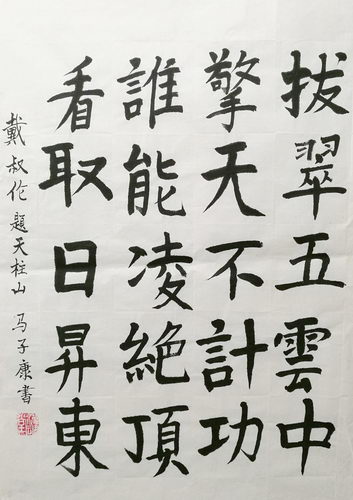 拔翠五雲中
擎天不計功
誰能凌絶頂
看取日昇東
戴叔伦题天柱山 马子康書